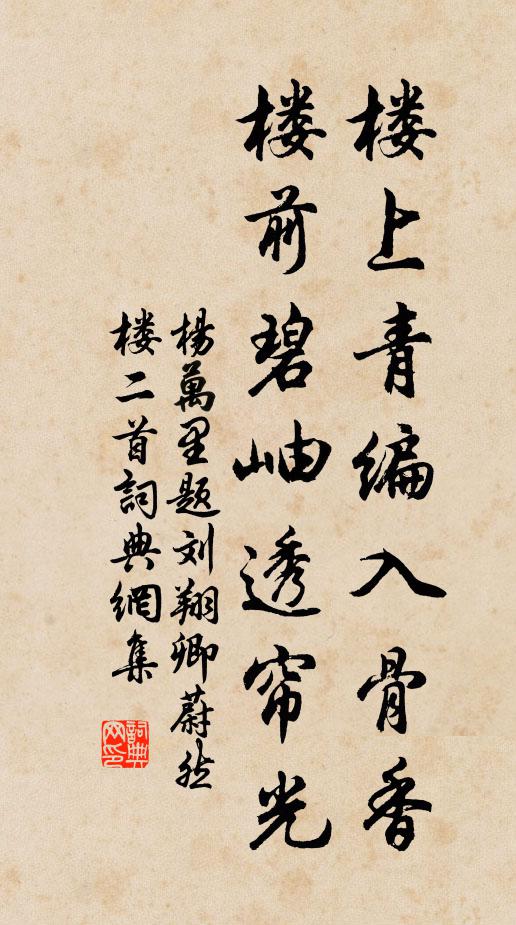 楼上青编入骨香
楼前碧岫透帘光
杨萬里题刘翔卿蔚然
楼二首詞典網集
詞典
网印